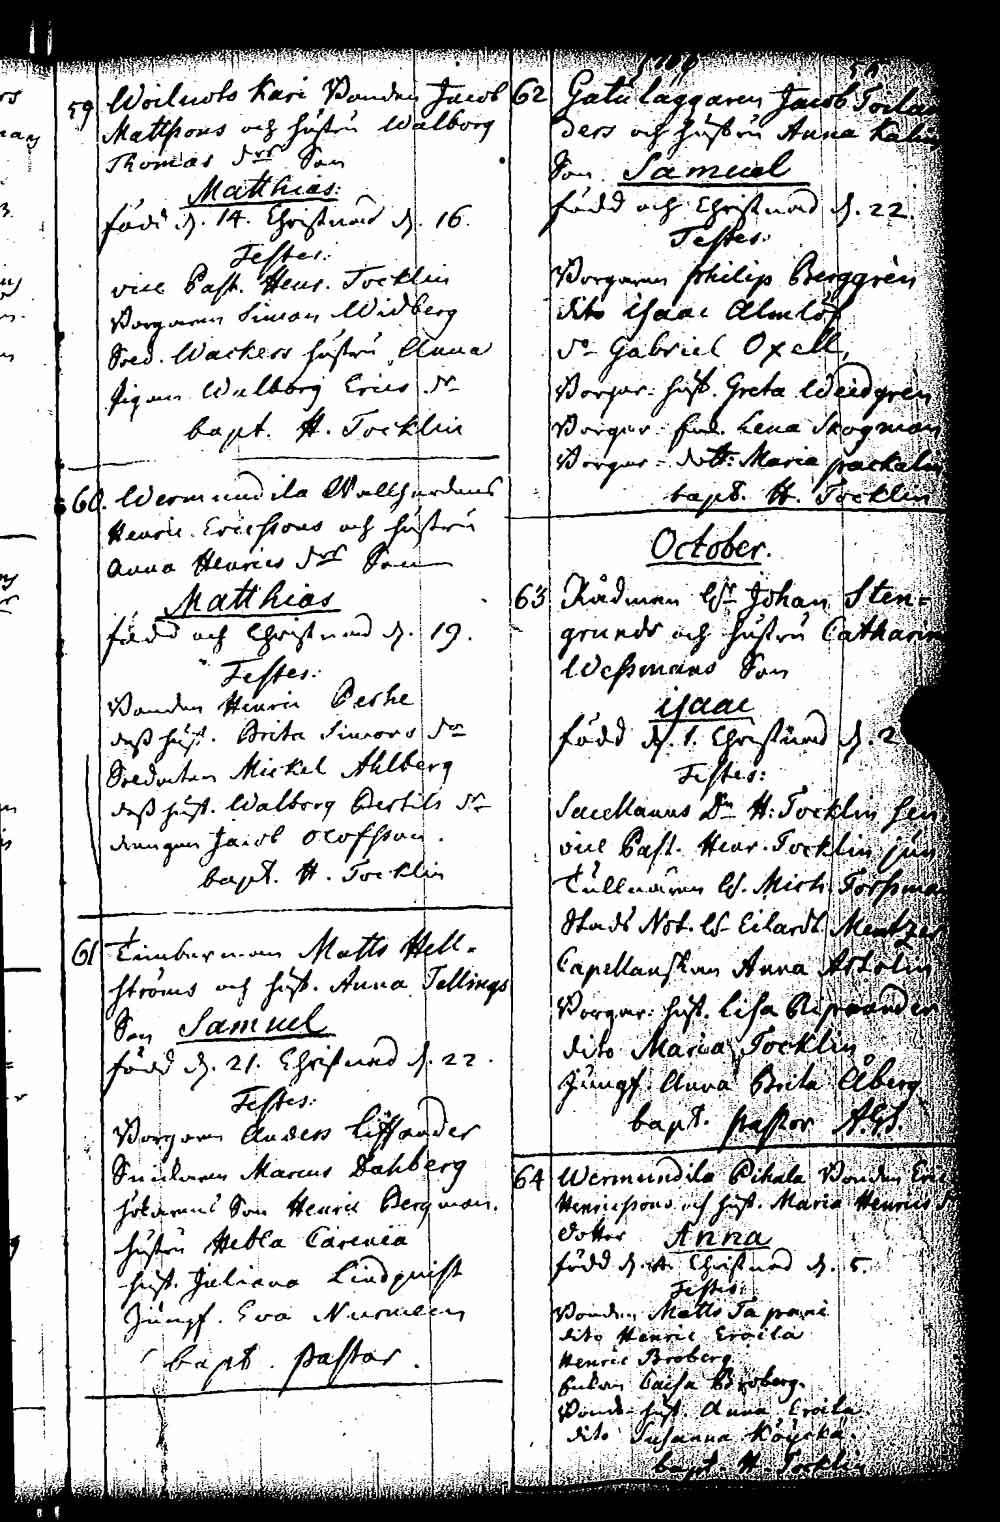 59 Woiluoto Kari Bonden Jacob
Mattssons och hustru Walborg
Thomas dotr Son
Matthias:
född d. 14. Christnad d. 16.
Testes:
vice Past. Henr. Tocklin
Borgaren Simon Widberg
Sold. Wackers hustru Anna
Pigan Walborg Erics dr
bapt. H. Tocklin
60. Wermundila
Henric Ericssons och hustru
Anna Henrics dotr Son
Matthias
född och Christnad d. 19.
Testes:
Bonden Henric Perhe
dess hust. Brita Simons dr
Soldaten Mickel Ahlberg
dess hust. Walborg Bertils dr
drängen Jacob Olofsson.
bapt. H. Tocklin
61 Timberman Matts Hell-
ströms och hust. Anna Tellings
Son Samuel
född d. 21. Christnad d. 22.
Testes:
Borgaren Anders
Marcus Dahberg
Son Henric Bergman.
hustru Hebla Carenia
hust. Juliana Lindquist
Jungf. Eva
bapt. pastor.
62 Gatuläggaren Jacob
ders och hustru Anna
Son Samuel
född och Christnad d. 22.
Testes:
Borgaren Philip Berggrén
dito Isaac Almlöf
do Gabriel Oxell,
Borgar hust. Greta Wendgrén
Borgar Enk. Lena Skogman
Borgar dott: Maria
bapt. H. Tocklin
October.
63 Rådman Hr Johan Sten-
grunds och hustru Catharina
Wessmans Son
Isaac
född d. 1. Christnad d. 2
Testes:
Sacellanus Dn H: Tocklin Sen
vice Past. Henr. Tocklin jun
Tullnären H. Mich. Forssman
Stads Not. Hr Eilardt Mentzer
Capellanskan Anna
Borgar hust. Lisa
dito Maria Tocklin
Jungf. Anna Brita Åberg
bapt. pastor
64 Wermundila Pihala Bonden Eric
Henricssons och hust. Maria Henrics dr
dotter Anna
född d. Christnad d. 5.
Testes:
Bonden Matts Tapani
dito Henric Eroila
Henric Broberg
Enkan Caisa Broberg.
Bonde hust. Anna Eroila
dito Susanna Köyckä.
bapt. H. Tocklin